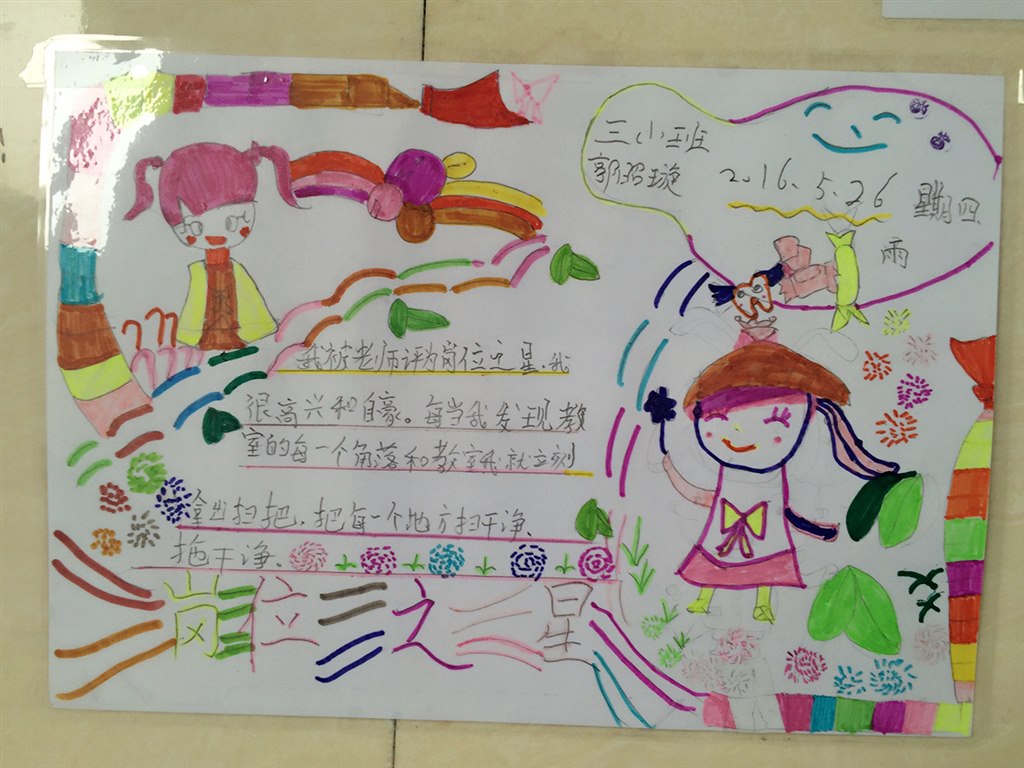 三小班
郭
璇
2.016.5.26
星期四
雨
我被老师评为岗位之星.我
很高兴和自豪。每当我发现教
室的每一个角落和教室我就立刻
拿出扫把.把每一个地方扫干净.
拖干净.
岗位之星